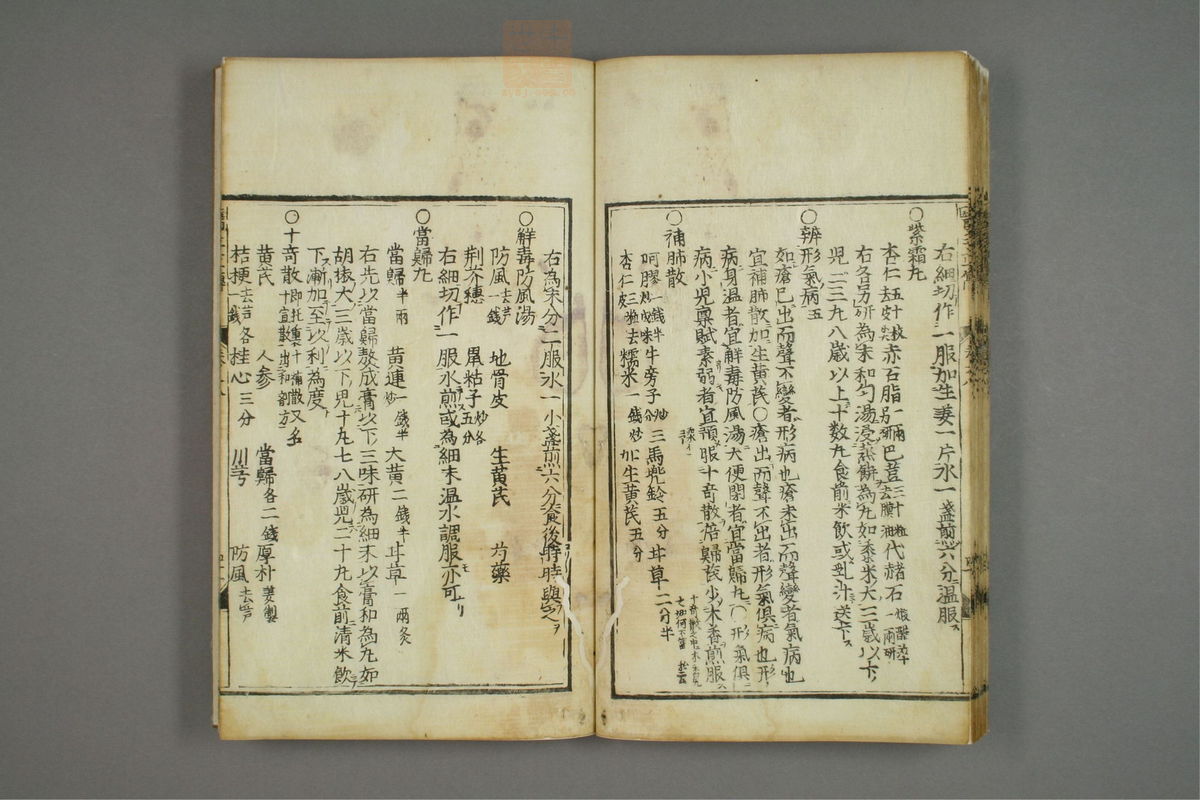 右細切作一服加生姜一片水一盞煎六分温服ス
○紫霜丸
杏仁五十枚去皮尖赤石脂一兩別研巴荳三十粒去膜油代赭石一兩煅醋淬研
右各另研為末和勻湯浸蒸餅為丸如黍米大三歲以下
兒二三丸八歲以上十数丸食前米飲或乳汁送下ス
○辨形氣病五
如瘡已出而聲不變者形病也瘡未出而聲變者氣病也
宜補肺散加生黄芪○瘡出而聲不出者形氣俱病也形
病身温者宜觧毒防風湯大便閉者宜當歸丸○形氣俱
病小兒禀賦素弱者宜預服十奇散倍歸芪少木香煎服
○補肺散
阿膠一錢半炒成珠牛旁子炒三分馬兜鈴五分甘草二分半
杏仁三粒去皮糯米一錢炒加生黄芪五分
右為末分二服水一小盞煎六分食後時時與之ヲ
○觧毒防風湯
防風去芦一錢 地骨皮 生黄芪 芍藥
荆芥穗 鼠粘子炒各五分
右細切作一服水煎或為細末温水調服亦可ナリ
○當歸丸
當歸半兩 黄連一錢半炒 大黄二錢半 甘草一兩炙
右先以當歸熬成膏以下三味研為細末以膏和為丸如
胡椒大三歲以下兒十丸七八歲兒二十丸食前清米飲
下漸加至以利為度
○十奇散即托裏十補散又名十宣散出和劑方
黄芪 人参 當歸各二錢 厚朴姜製
桔梗去芦各一錢 桂心三分 川芎 防風去芦